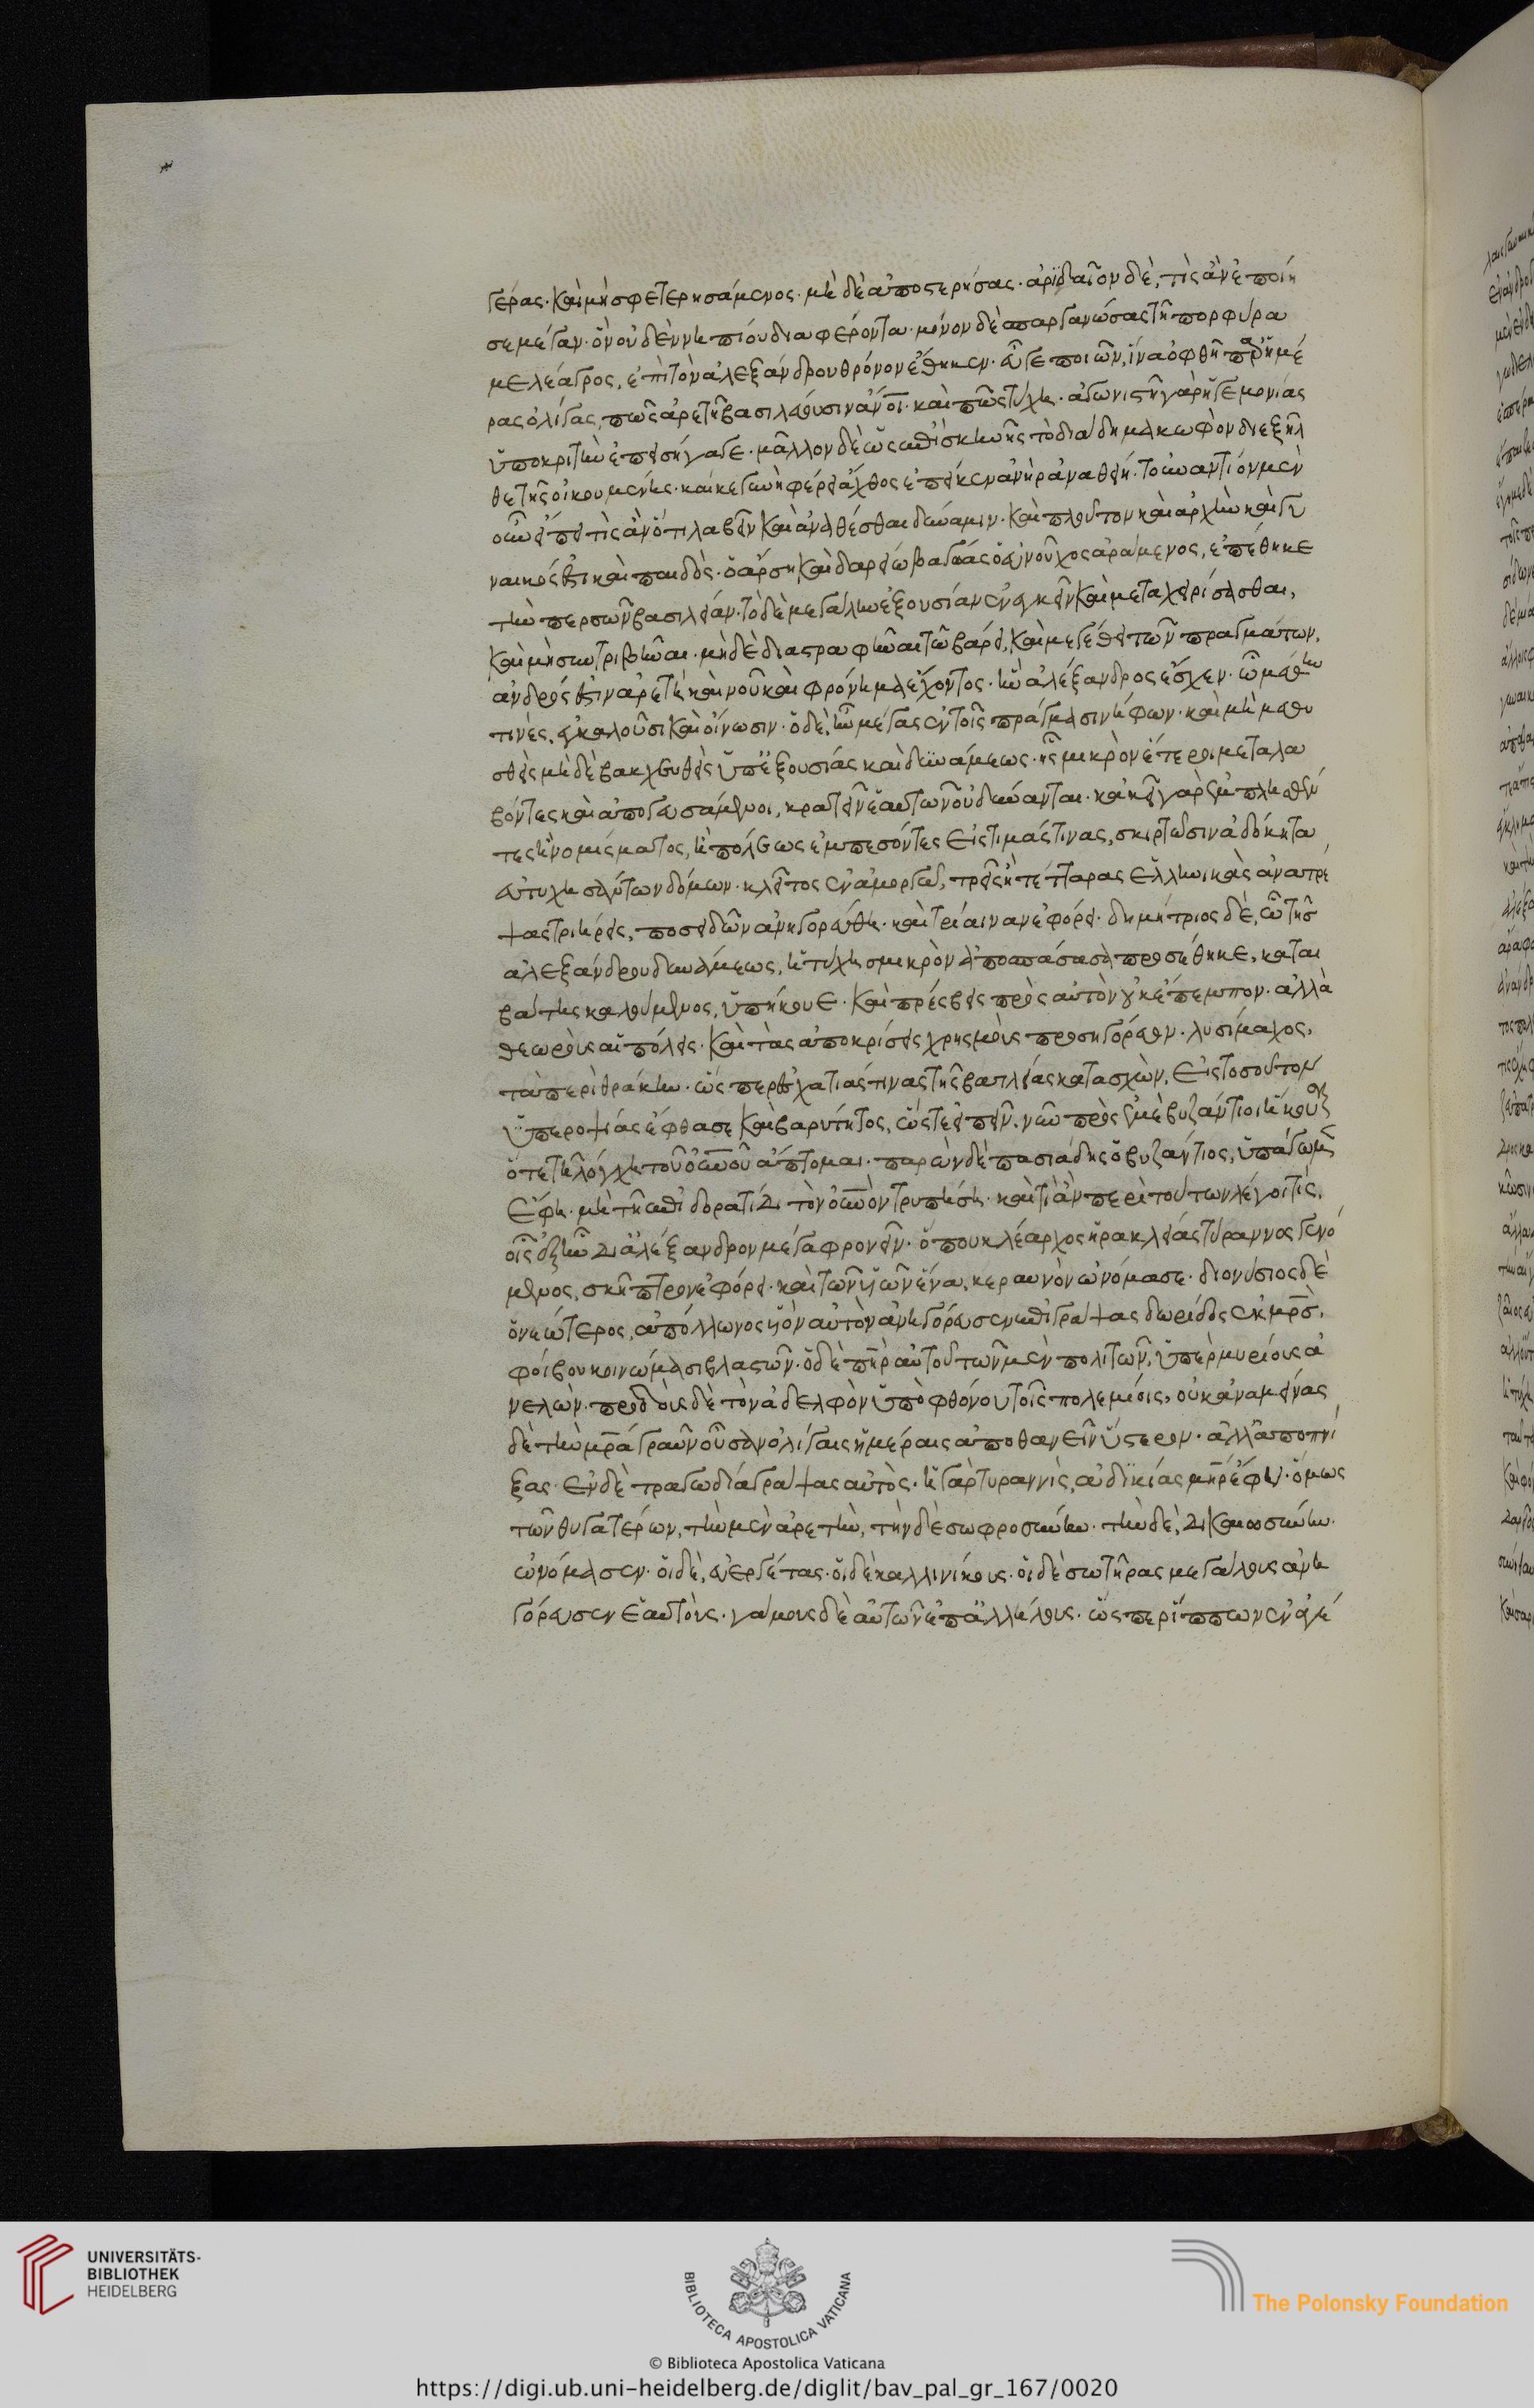 γέρας· καὶ μὴ σφετερησάμενος· μὴ δὲ ἀποστερήσας· ἀριδαῖον δὲ, τίς ἂν ἐποίη
σε μέγαν· ὃν οὐδὲν νηπίου διαφέροντα· μόνον δὲ σπαργανώσας τῆ πορφύρα
μελέαγρος, ἐπὶ τὸν ἀλεξάνδρου θρόνον ἔθηκεν· εὖγε ποιῶν, ἵνα ὀφθῆ παρ' ἡμέ
ρας ὀλίγας, πῶς ἀρετῆ βασιλεύουσιν ἄνοι· καὶ πῶς τύχη· ἀγωνιστῆ γὰρ ἡγεμονίας
ὑποκριτὴν ἐπεισήγαγε· μᾶλλον δὲ ὡς ἐπὶ σκηνῆς τὸ διάδημα κωφὸν διεξῆλ
θε τῆς οἰκουμένης· καί κε γυνὴ φέρει ἄχθος ἐπεί κεν ἀνὴρ ἀναθείη· τοὐναντίον μὲν
οὖν εἴποι τὶς ἂν ὅτι λαβεῖν καὶ ἀναθέσθαι δύναμιν· καὶ πλοῦτον καὶ ἀρχὴν καὶ γυ
ναικός ἐστι καὶ παιδὸς· ὀάρση καὶ δαρείω βαγώας ὁ εὐνοῦχος ἀράμενος, ἐπέθηκε
τὴν περσῶν βασιλείαν· τὸ δὲ μεγάλην ἐξουσίαν ἐνεγκεῖν καὶ μεταχειρίσασθαι,
καὶ μὴ συντριβῆναι· μηδὲ διαστραφῆναι τῶ βάρει, καὶ μεγέθει τῶν πραγμάτων,
ἀνδρός ἐστιν ἀρετὴν καὶ νοῦν καὶ φρόνημα ἔχοντος· ἣν ἀλέξανδρος ἔσχεν· ὧ μέθην
τινὲς, ἐγκαλοῦσι καὶ οἴνωσιν· ὁ δὲ, ἦν μέγας ἐν τοῖς πράγμασι νήφων· καὶ μὴ μεθυ
σθεὶς μὴ δὲ βακχευθεὶς ὑπ' ἐξουσίας καὶ δυνάμεως· ἧς μικρὸν ἕτεροι μεταλα
βόντες καὶ ἀπογευσάμενοι, κρατεῖν ἑαυτῶν οὐ δύνανται· κακοὶ γὰρ ἐμπλησθέν
τες ἢ νομίσματος, ἢ πόλεως ἐμπεσόντες εἰς τιμάς τινας, σκιρτῶσιν ἀδόκητα
εὐτυχησάντων δόμων· κλεῖτος ἐν ἀμοργῶ, τρεῖς ἢ τέτταρας ἑλληνικὰς ἀνατρέ
ψας τριήρεις, ποσειδῶν ἀνηγορεύθη· καὶ τρίαιναν ἐφόρει· δημήτριος δὲ, ὧ τῆς
ἀλεξάνδρου δυνάμεως, ἡ τύχη σμικρὸν ἀποσπάσασα προσέθηκε, καται
βάτης καλούμενος, ὑπήκουε· καὶ πρέσβεις πρὸς αὐτὸν οὐκ ἔπεμπον· ἀλλὰ
θεωροὺς αἱ πόλεις· καὶ τὰς ἀποκρίσεις χρησμοὺς προσηγόρευον· λυσίμαχος,
τὰ περὶ θράκην· ὥσπερ ἐσχατιάς τινας τῆς βασιλείας κατασχὼν, εἰς τοσοῦτον
ὑπεροψίας ἔφθασε καὶ βαρύτητος, ὥστε εἰπεῖν· νῦν πρὸς ἐμὲ βυζάντιοι ἥκουσιν
ὅτε τῆ λόγχη τοῦ οὐνοῦ ἅπτομαι· παρὼν δὲ πασιάδης ὁ βυζάντιος, ὑπάγωμεν
ἔφη· μὴ τῆ ἐπιδορατίδι τὸν οὐνὸν τρυπήση· καὶ τί ἂν περὶ τούτων λέγοι τις,
οἷς ἐξῆν δι' ἀλέξανδρον μέγα φρονεῖν· ὅπου κλέαρχος ἡρακλείας τύραννος γενό
μενος, σκηπτρον ἐφόρει· καὶ τῶν υἱῶν ἕνα, κεραυνὸν ὠνόμασε· διονύσιος δὲ
ὁ νεώτερος, ἀπόλλωνος υἱὸν αὑτὸν ἀνηγόρευσεν ἐπιγράψας δωρίδος ἐκ μρς,
φοίβου κοινώμασι βλαστῶν· ὁ δὲ πὴρ αὐτοῦ τῶν μὲν πολιτῶν, ὑπὲρ μυρίους ἀ
νελὼν· προδοὺς δὲ τὸν ἀδελφὸν ὑπὸ φθόνου τοῖς πολεμίοις, οὐκ ἀναμείνας
δὲ τὴν μρα γραῦν οὖσαν ὀλίγαις ἡμέραις ἀποθανεῖν ὕστερον· ἀλλ' ἀποπνί
ξας· ἐν δὲ τραγωδία γράψας αὐτὸς· ἡ γὰρ τυραννὶς, ἀδικίας μηρ ἔφυ· ὅμως
τῶν θυγατέρων, τὴν μὲν ἀρετὴν, τὴν δὲ σωφροσύνην· τὴν δὲ, δικαιοσύνην·
ὠνόμασεν· οἱ δὲ, εὐεργέτας· οἱ δὲ καλλινίκους· οἱ δὲ σωτῆρας μεγάλους ἀνη
γόρευσεν ἑαυτοὺς· γάμους δὲ αὐτῶν ἐπ' ἀλλήλους· ὥσπερ ἵππων ἐν ἀγέ
UNIVERSITÄTS-
BIBLIOTHEK
HEIDELBERG
BIBLIOTECA APOSTOLICA VATICANA
The Polonsky Foundation
© Biblioteca Apostolica Vaticana
https://digi.ub.uni-heidelberg.de/diglit/bav_pal_gr_167/0020